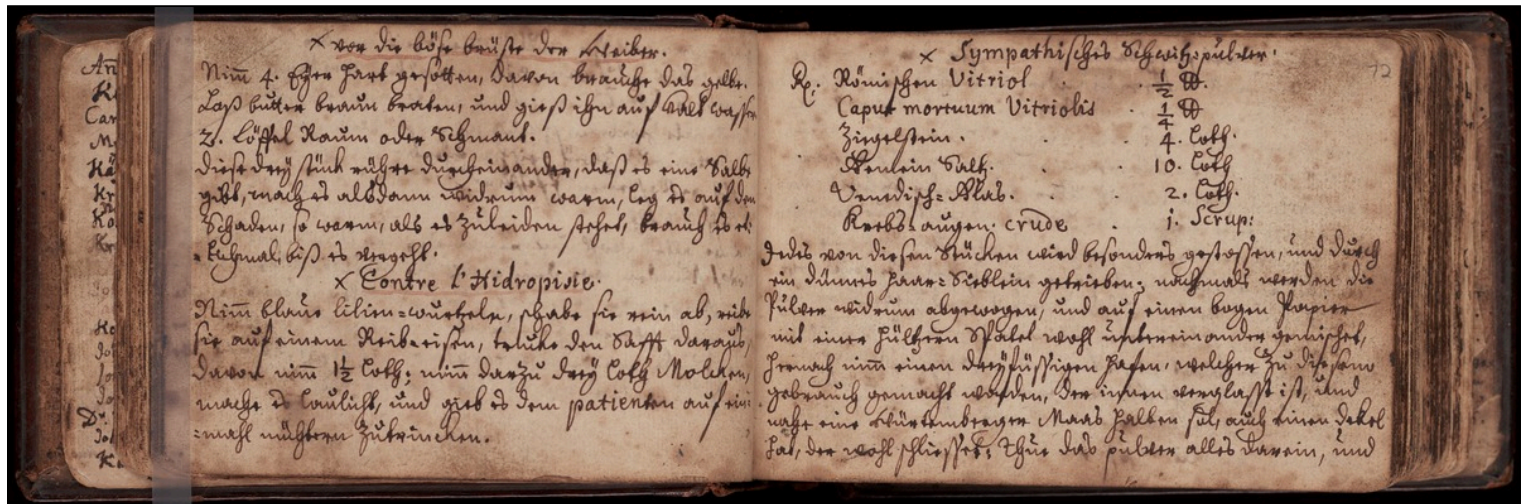 × vor die böse brüste der Weiber.
Nim̅ 4. Eyer hart gesotten, davon brauche das gelbe.
Laß butter braun braten, und gieß ihn auf kalt wasser
2. Löffel Raum oder Schmant.
diese drey stück rühre durcheinander, daß es eine Salbe
gibt, mach es alsdann widrum warm, leg es auf den
Schaden, so warm, als es zuleiden stehet, brauch es et:
=lichmal, biß es vergeht.
× Contre l'Hidropisie.
Nim̅ blaue lilien=wurtzeln, schabe sie rein ab, reibe
sie auf einem Reib=eisen, trucke den Safft daraus,
davon nim̅ 1½ Loth; nim̅ darzu drey Loth Molcken,
mache es laulicht, und gieb es dem patienten auf ein:
=mahl nüchtern zutrincken.
An̅
Ka
Car
Kö
Dr.
× Sympathisches Schwitz=pulver.
72
Rp. Römischen Vitriol . ½ ℔.
Caput mortuum Vitriolis . ¼ ℔
Ziegelstein . . 4. Loth.
Salt. . 10. Loth
Venedisch=Glas. . 2. Loth.
Krebs=augen. crude . 1. Scrup:
Jedes von diesen Stücken wird besonders gestossen, und durch
ein dünnes haar=Sieblein getrieben; nachmals werden die
Pulver widrum abgewogen, und auf einen bogen Papier
mit einer hültzern Spatel wohl untereinander gemischet,
hernach nim̅ einen dreyfüssigen hafen, welcher zu diesem
gebrauch gemacht worden, der innen verglasst ist, und
nahe eine Würtemberger Maas halten soll, auch einen dekel
hat, der wohl schliesset; Thue das pulver alles darein, und